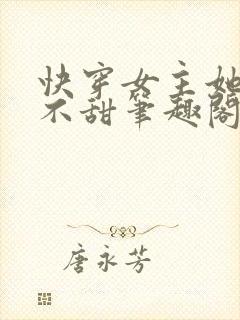 快穿女主她
不甜筆趣閣
唐永芳